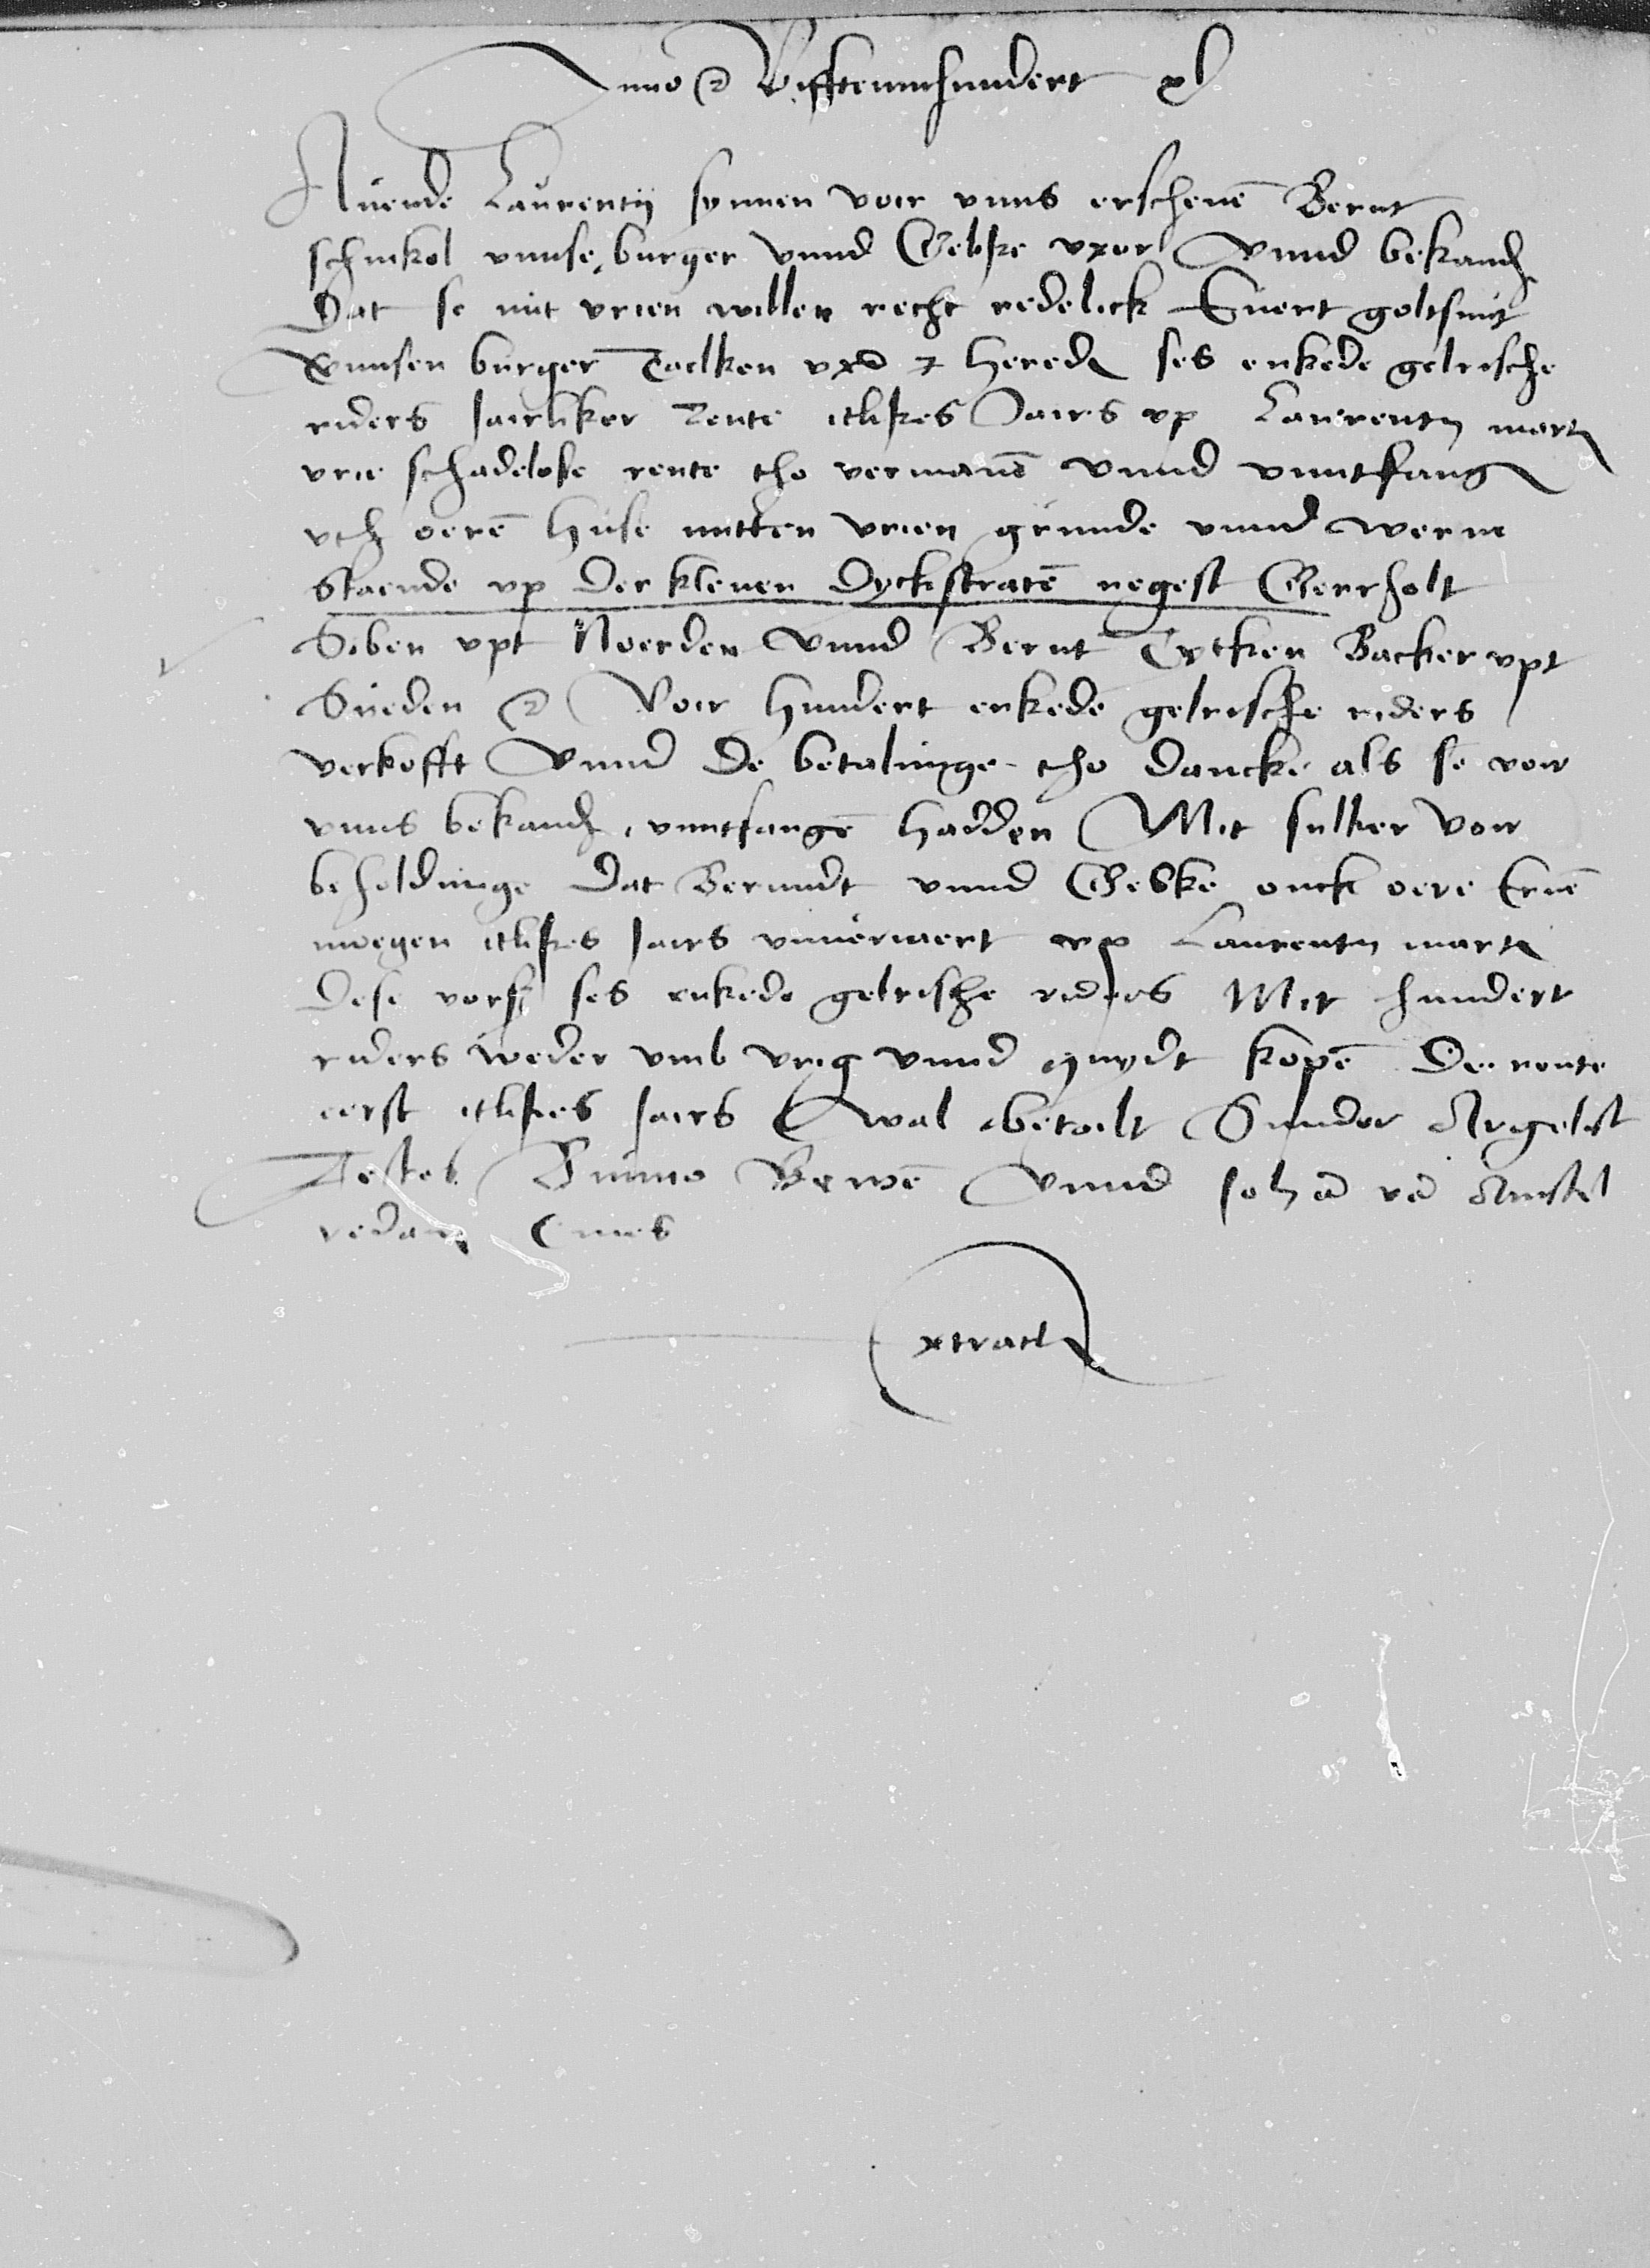 Anno etc Vifftennhundert xl
Auende Laurentij synnen voir vnns erschenē Bernt
schinkel vnnse burger vnnd Gebke vxor vnnd bekandt
Dat se mit vrien willen recht redelick Euert goltsmit
vnnsen burger Taelken vxō et hered ses enkede gelrische
riders Jairliker Rente itlikes Jairs vp Laurentij mart
vrie schadelose rente tho vermanē vnnd vnntfang
vth oerē huse mitten vrien grunde vnnd werue
Staende vp der klenen Dyckstratē negest Gerrholt
Siben vpt Noerden vnnd Bernt Tytken Backer vpt
Sueden etc Voir hundert enkede gelrische riders
verkofft vnnd De betalinge tho dancke als se voir
vnns bekandt vnntfangē hadden Mit sulker voir
beholdinge Dat Bernndt vnnd Geske ouck oere Eruē
moegen itlikes Jairs vnuerwert vp Laurentij mart
Dese vorss ses enkede gelrische riders Mit hundert
riders weder vmb vrig vnnd quydt kopē De rente
eerst itlikes Jairs wal betailt Sunder Argelist
Testes Rewē vnnd Johā vā Amstel
redam Ciues
Extract